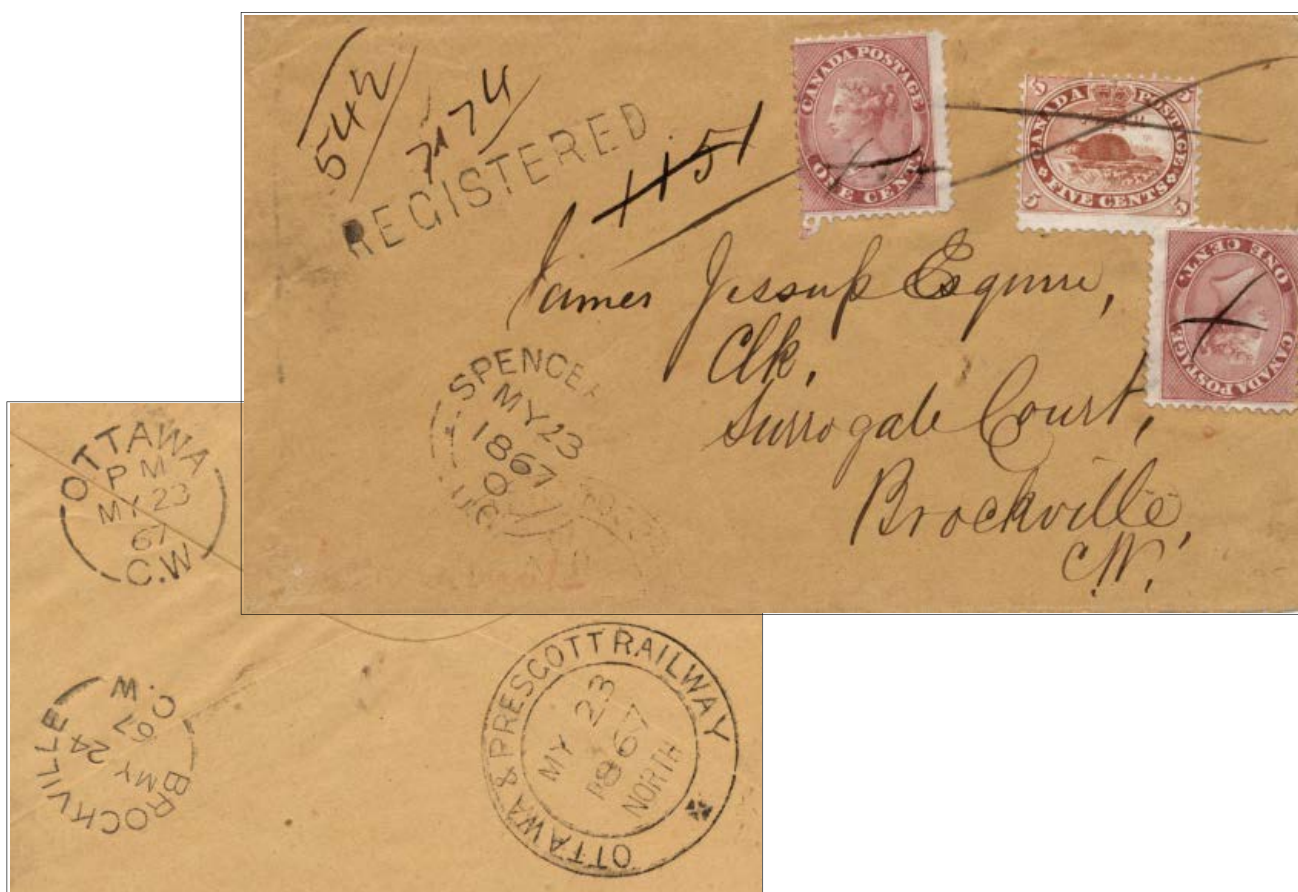 542
7174
REGISTERED
1151
CANADA POSTAGE
ONE CENT
CANADA POSTAGE
5 5
FIVE CENTS
5 5
CANADA POSTAGE
ONE CENT.
James Jessup Esquire,
Clk,
Surrogate Court,
Brockville,
C.W.
SPENCER
MY 23
1867
OTTAWA
PM
MY 23
67
C.W
BROCKVILLE
MY 24
67
C.W
OTTAWA & PRESCOTT RAILWAY
MY 23
1867
NORTH